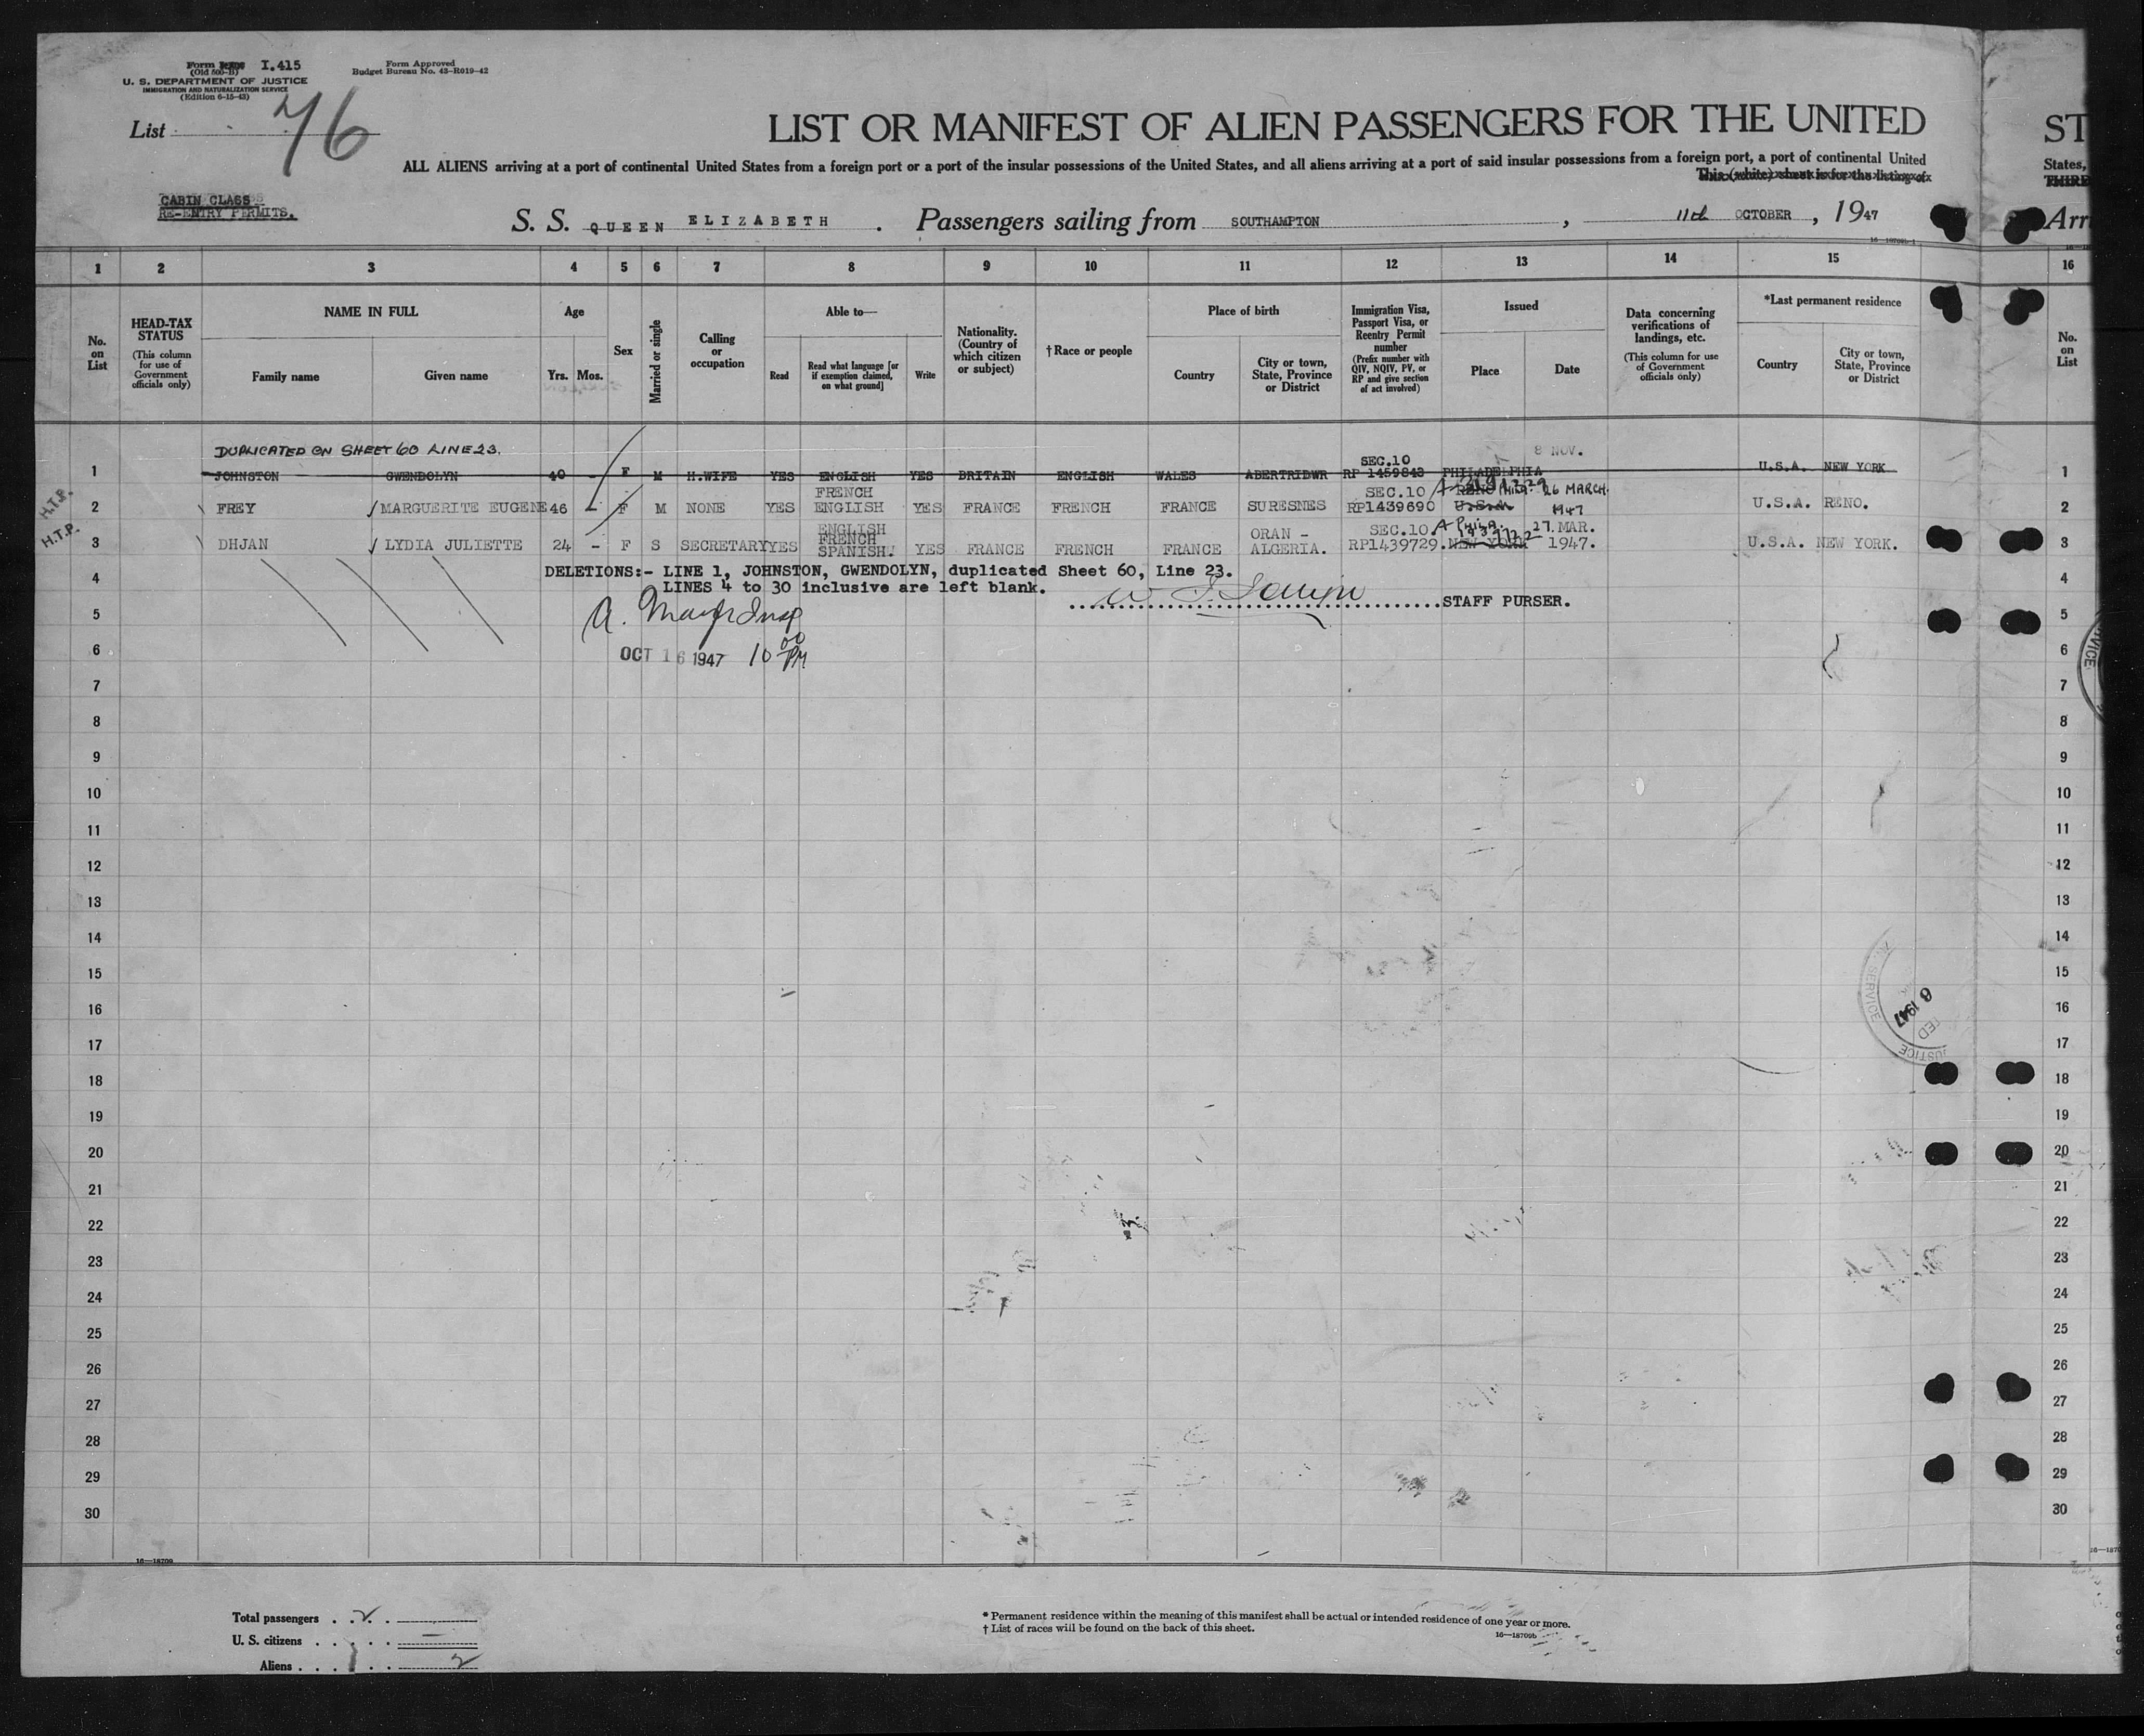 Form I.415
(Old 500-B)
U. S. DEPARTMENT OF JUSTICE
IMMIGRATION AND NATURALIZATION SERVICE
(Edition 6-15-43)
Form Approved
Budget Bureau No. 43-R019-42
List 76
LIST OR MANIFEST OF ALIEN PASSENGERS FOR THE UNITED ST
ALL ALIENS arriving at a port of continental United States from a foreign port or a port of the insular possessions of the United States, and all aliens arriving at a port of said insular possessions from a foreign port, a port of continental United States,
This (white) sheet is for the listing of THIRD
CABIN CLASS
RE-ENTRY PERMITS.
S. S. QUEEN ELIZABETH . Passengers sailing from SOUTHAMPTON , 11th OCTOBER , 1947 Arri
1 2 3 4 5 6 7 8 9 10 11 12 13 14 15 16
No. on List
HEAD-TAX STATUS (This column for use of Government officials only)
NAME IN FULL
Family name Given name
Age
Yrs. Mos.
Sex
Married or single
Calling or occupation
Able to—
Read
Read what language [or if exemption claimed, on what ground]
Write
Nationality. (Country of which citizen or subject)
† Race or people
Place of birth
Country
City or town, State, Province or District
Immigration Visa, Passport Visa, or Reentry Permit number (Prefix number with QIV, NQIV, PV, or RP and give section of act involved)
Issued
Place Date
Data concerning verifications of landings, etc. (This column for use of Government officials only)
*Last permanent residence
Country
City or town, State, Province or District
No. on List
DUPLICATED ON SHEET 60 LINE 23.
1 JOHNSTON GWENDOLYN 40 - F M H.WIFE YES ENGLISH YES BRITAIN ENGLISH WALES ABERTRIDWR SEC.10 RP 1459843 PHILADELPHIA 8 NOV. U.S.A. NEW YORK 1
H.T.P. 2 FREY MARGUERITE EUGENE 46 - F M NONE YES FRENCH ENGLISH YES FRANCE FRENCH FRANCE SURESNES SEC.10 RP1439690 RENO Phila. 26 MARCH 1947 U.S.A. RENO. 2
H.T.P. 3 DHJAN LYDIA JULIETTE 24 - F S SECRETARY YES ENGLISH FRENCH SPANISH. YES FRANCE FRENCH FRANCE ORAN - ALGERIA. SEC.10. RP1439729. Phila. NEW YORK 27 MAR. 1947. U.S.A. NEW YORK. 3
4 DELETIONS:- LINE 1, JOHNSTON, GWENDOLYN, duplicated Sheet 60, Line 23. 4
LINES 4 to 30 inclusive are left blank.
STAFF PURSER.
5 5
6 OCT 16 1947 10 00 PM 6
7 7
8 8
9 9
10 10
11 11
12 12
13 13
14 14
15 15
16 16
17 17
18 18
19 19
20 20
21 21
22 22
23 23
24 24
25 25
26 26
27 27
28 28
29 29
30 30
SERVICE
8 1947
JUSTICE
VICE
16—18709
Total passengers . . 2 .
U. S. citizens . . . . . —
Aliens . . . . . . 2
* Permanent residence within the meaning of this manifest shall be actual or intended residence of one year or more.
† List of races will be found on the back of this sheet.
16—18709b